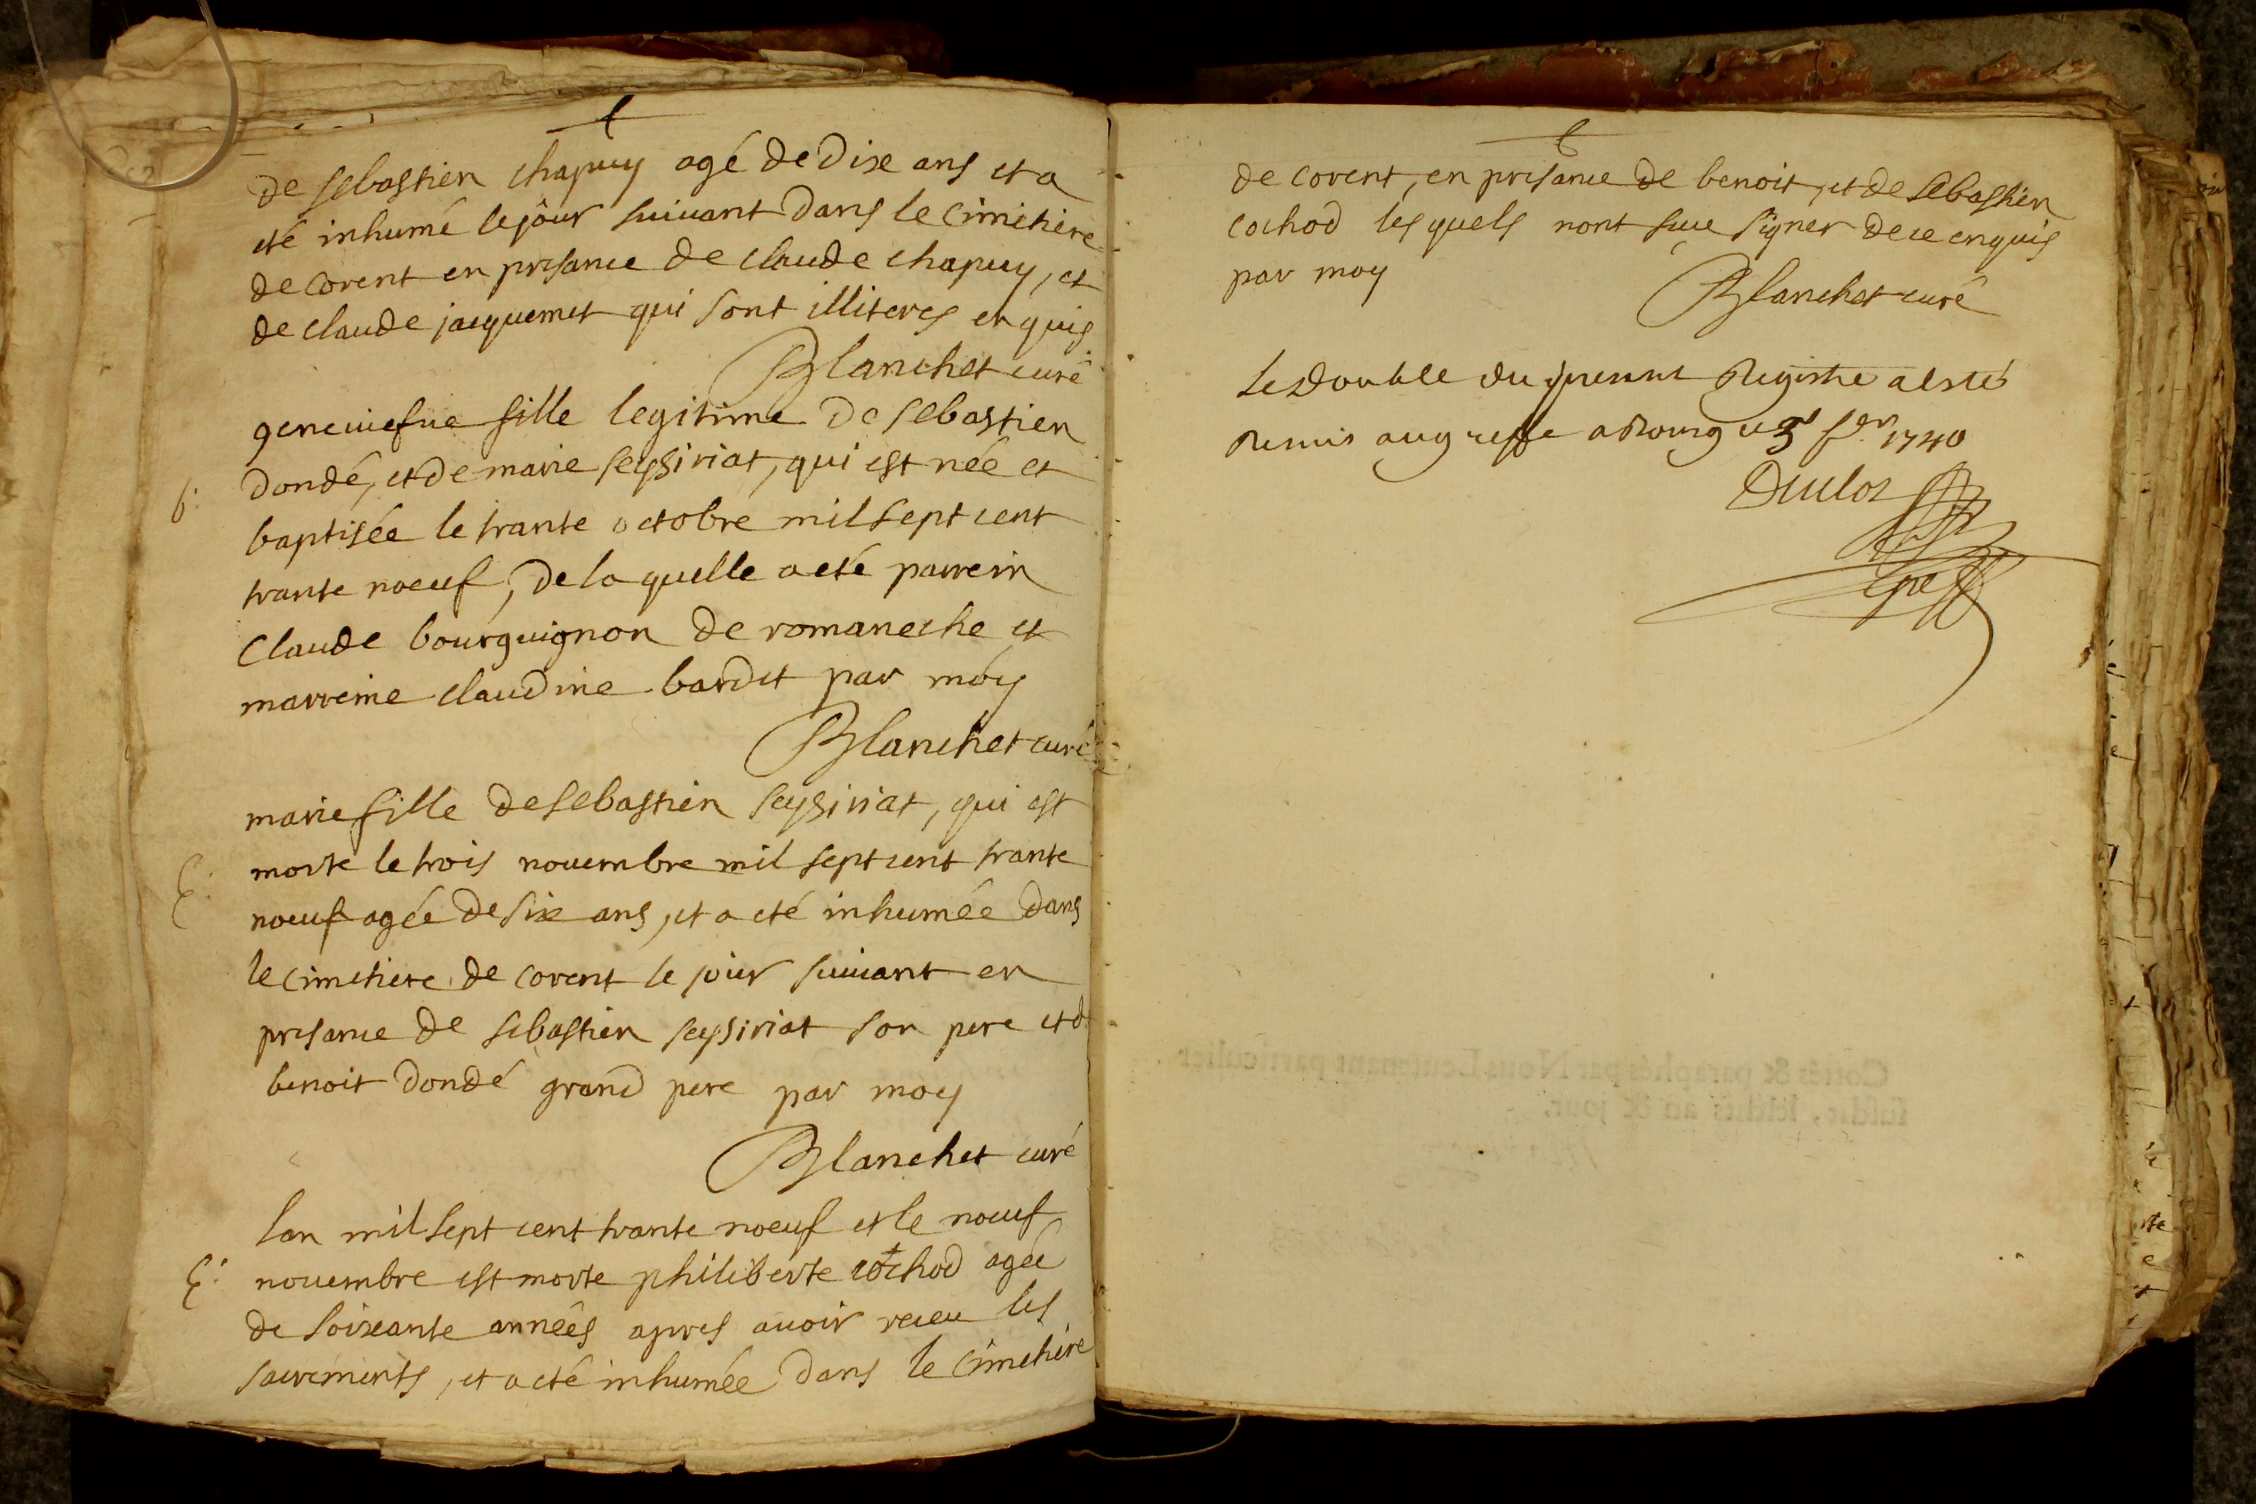 de sebastien chapuy agé de dix ans et a
eté inhumé le jour suivant dans le cimetiere
de corent en presance de claude chapuy, et
de claude jacquemet qui sont illiteres enquis
Blanchet curé
geneuiefue fille legitime de sebastien
b: dondé, et de marie seysiriat, qui est née et
baptisée le trante octobre mil sept cent
trante noeuf, de la quelle a eté parrein
Claude bourguignon de romaneche et
marreine claudine bardet par moy
Blanchet curé
marie fille de sebastien seysiriat, qui est
E: morte le trois nouembre mil sept cent trante
noeuf agée de six ans, et a eté inhumée dans
le cimetiere de corent le jour suiuant en
presance de sebastien seysiriat son pere et d
benoit dondé grand pere par moy
Blanchet curé
lan mil sept cent trante noeuf et le noeuf
E: nouembre est morte philiberte cochod agée
de soixante années apres auoir receu les
sacrements, et a eté inhumée dans le cimetiere
de corent, en presance de benoit, et de sebastien
cochod les quels nont sceu signer de ce enquis
par moy
Blanchet curé
Le double du present Registre a esté
Remis au greffe a Bourg ce 3 1740
Duclos